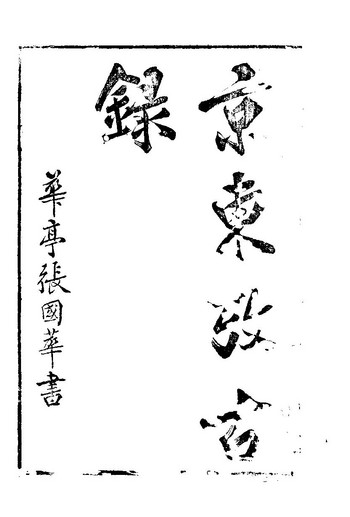 京東攷古
錄
華亭張國華書